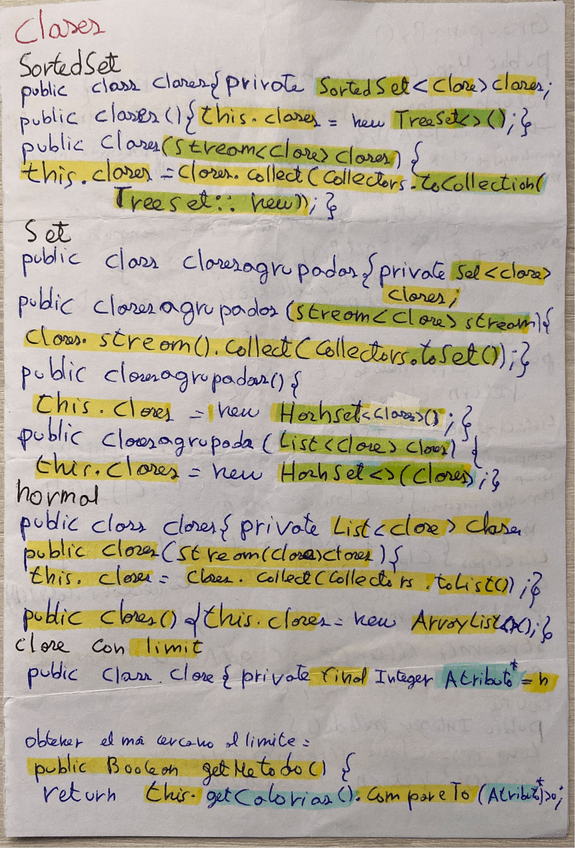 Clases
SortedSet
public class clases{private SortedSet<clase>clases;
public clases(){this.clases = new TreeSet<>();}
public Clases(stream<clase>clases) {
this.clases =clases.collect(Collectors.toCollection(
TreeSet::new));}
Set
public class clasesagrupadas{private Set<clase>
clases;
public clasesagrupadas(stream<clase>stream){
clases.stream().collect(Collectors.toSet());}
public clasesagrupadas() {
this.clases = new HashSet<clases>();}
public clasesagrupada (List<clase>clases) {
this.clases = new HashSet<>(clases);}
Normal
public class clases{ private List<clase> clases
public clases(stream(clase)clases){
this.clases = clases.collect(Collectors.toList());}
public clases() {this.clases = new ArrayList<>();}
clase con limit
public class clase { private final Integer Atributo* = n
obtener el ma cercano al limite =
public Boolean getMetodo() {
return this.getCalorias().compareTo (Atribut*)>0;